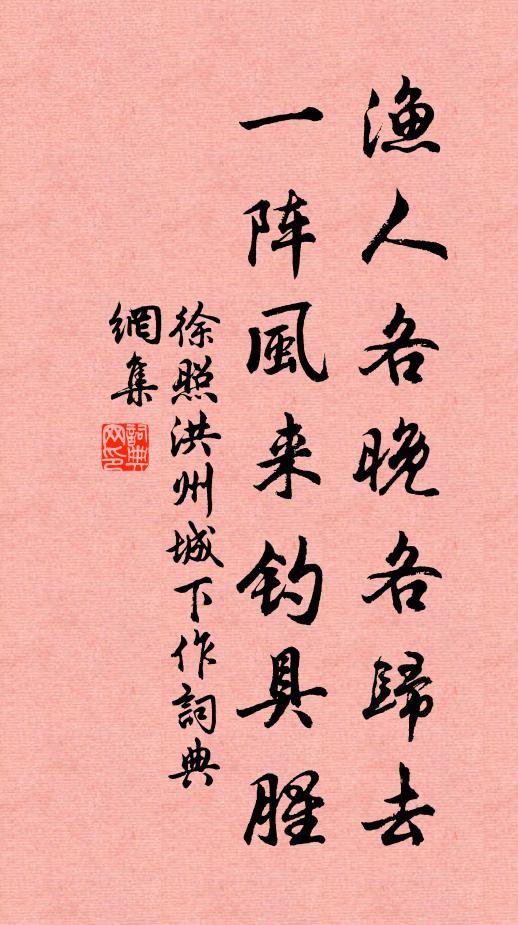 漁人各晚各歸去
一阵風来钓具腥
徐照洪州城下作詞典
網集
詞典网印